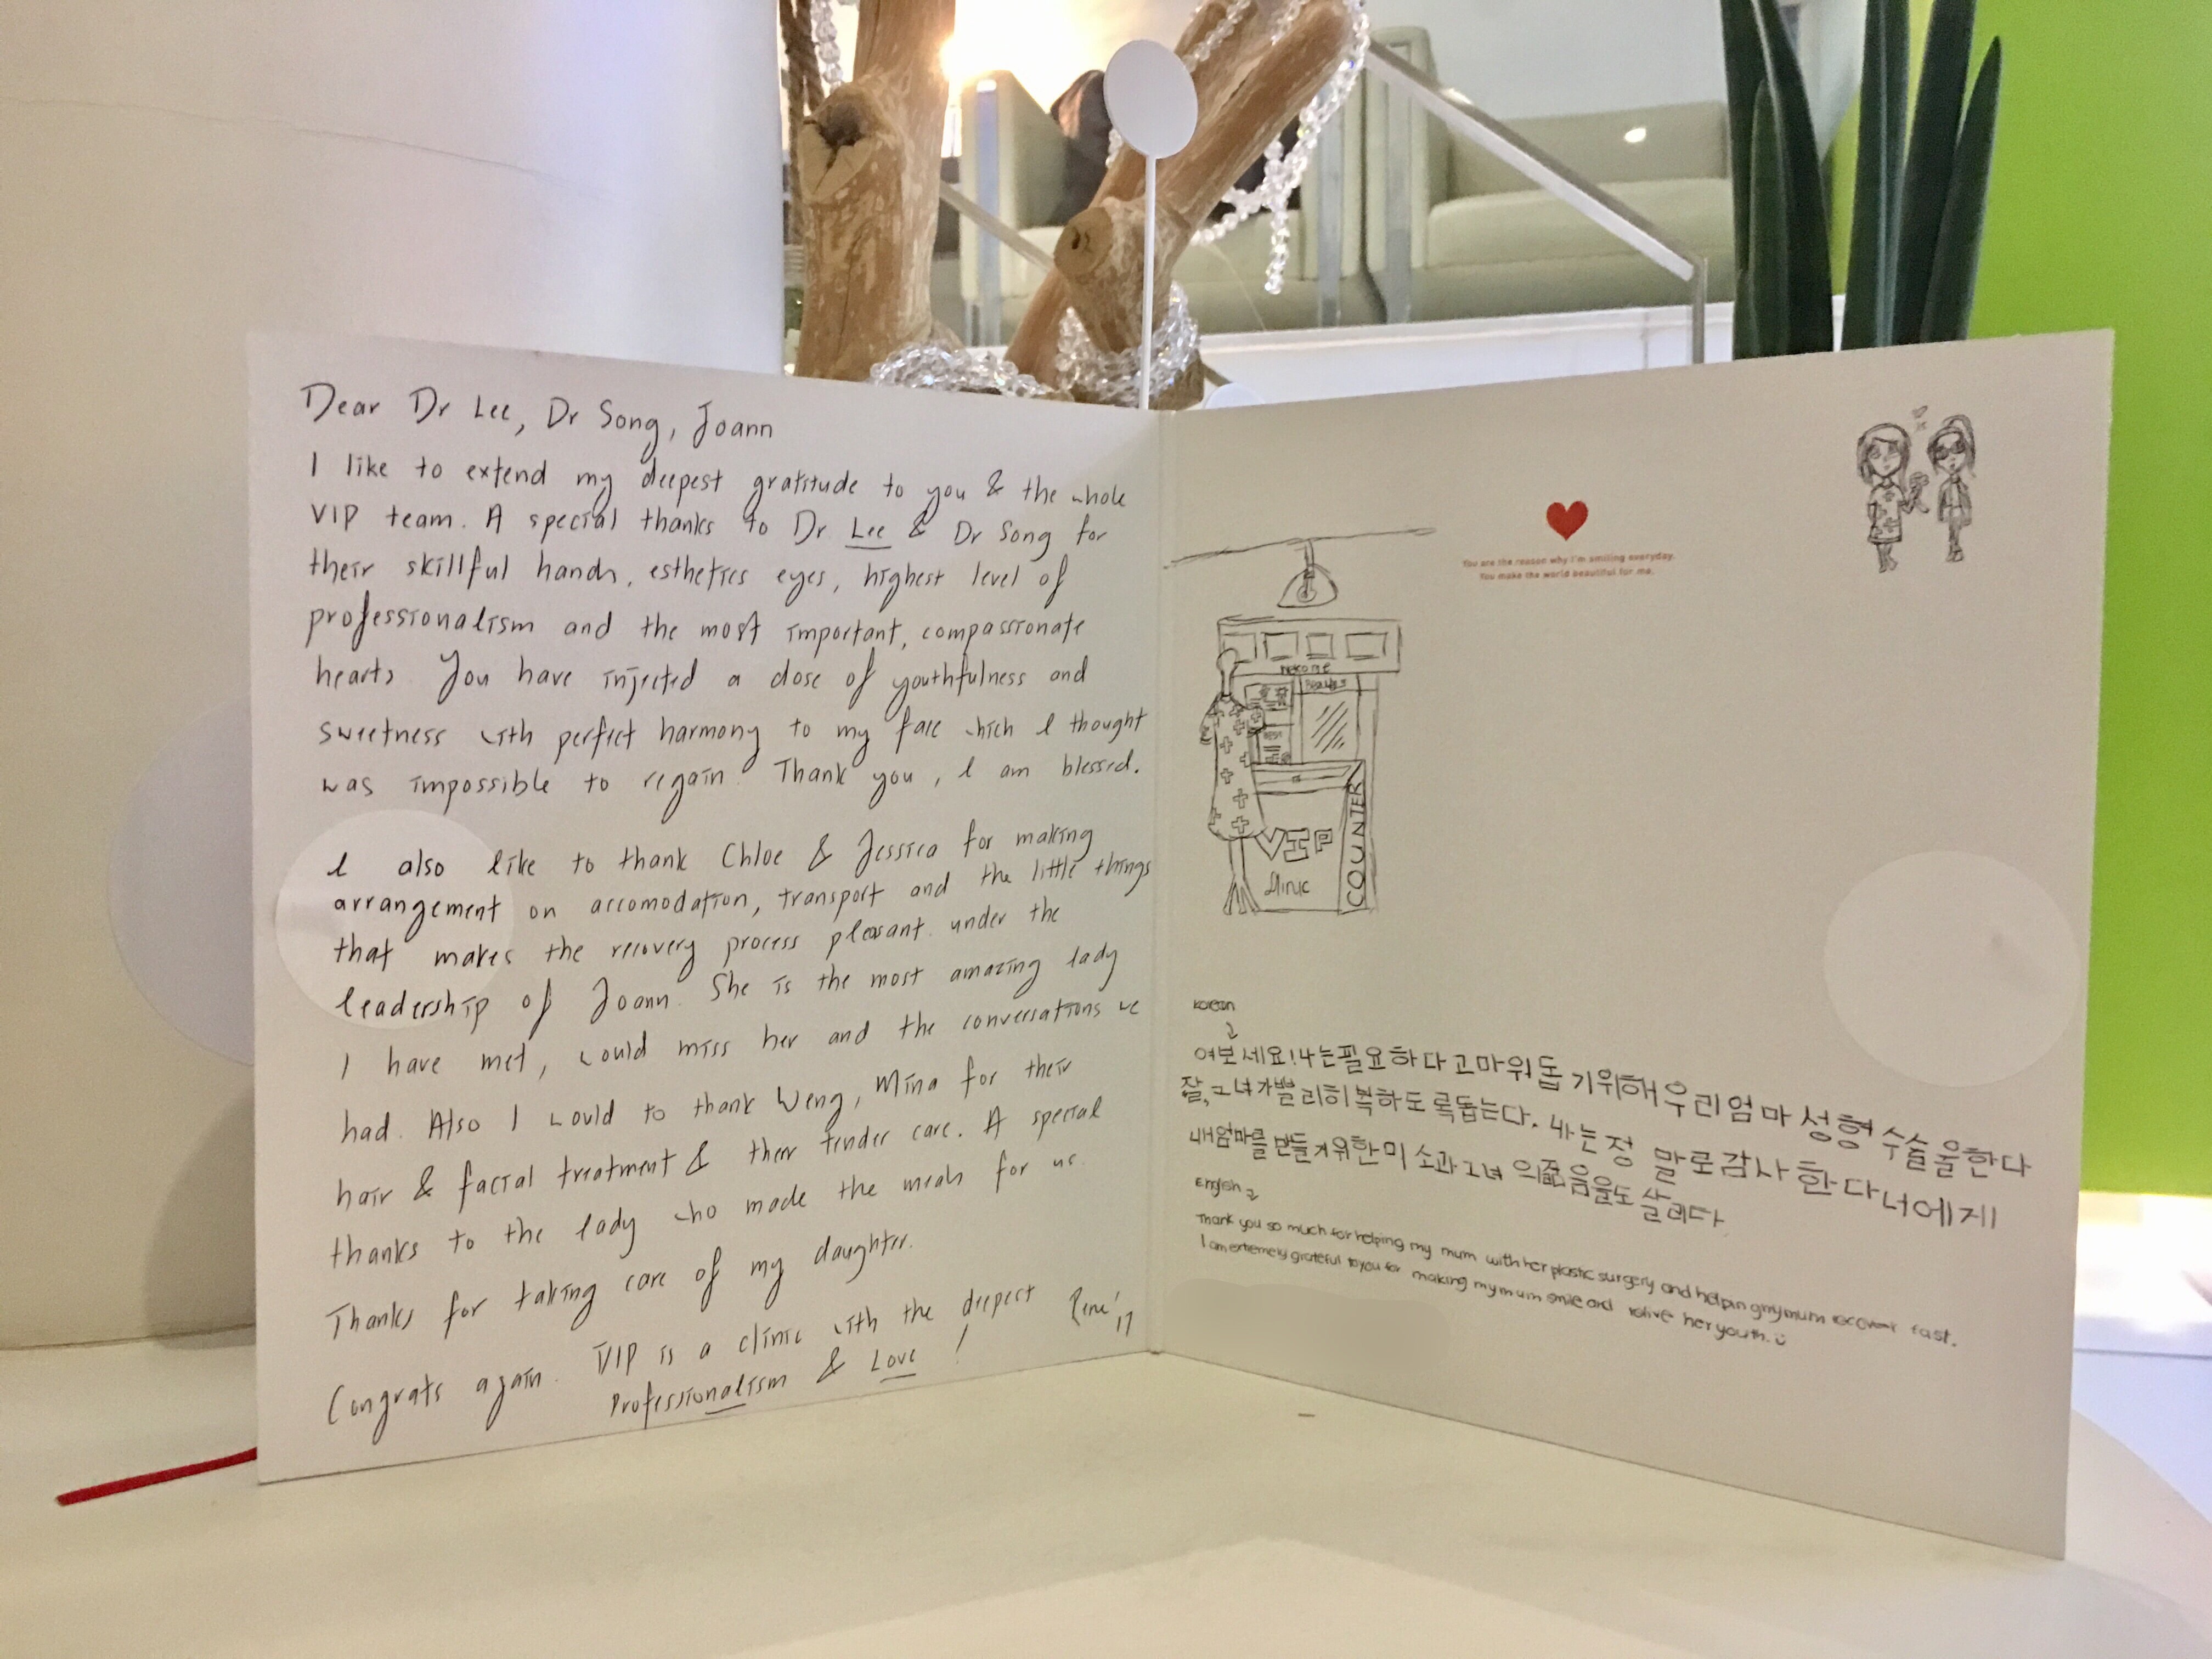 Dear Dr Lee, Dr Song, Joann
I like to extend my deepest gratitude to you & the whole
VIP team. A special thanks to Dr Lee & Dr Song for
their skillful hands, esthetics eyes, highest level of
professionalism and the most important, compassionate
hearts. You have injected a dose of youthfulness and
sweetness with perfect harmony to my face which I thought
was impossible to regain. Thank you, I am blessed.
I also like to thank Chloe & Jessica for making
arrangement on accomodation, transport and the little things
that makes the recovery process pleasant under the
leadership of Joann. She is the most amazing lady
I have met, would miss her and the conversations we
had. Also I would to thank Weng, Mina for their
hair & facial treatment & their tender care. A special
thanks to the lady who made the meals for us.
Thanks for taking care of my daughter.
Congrats again. VIP is a clinic with the deepest
Professionalism & Love!
You are the reason why I'm smiling everyday.
You make the world beautiful for me.
Welcome
VIP
COUNTER
Korean
여보세요! 나는필요하다고마워돕기위해우리엄마성형수술을한다
잘, 그녀가빨리회복하도록돕는다. 나는정말로감사한다너에게
내엄마를만들기위한미소과그녀의젊음을도살리다
English
Thank you so much for helping my mum with her plastic surgery and helping my mum recover fast.
I am extremely grateful to you for making my mum smile and relive her youth.